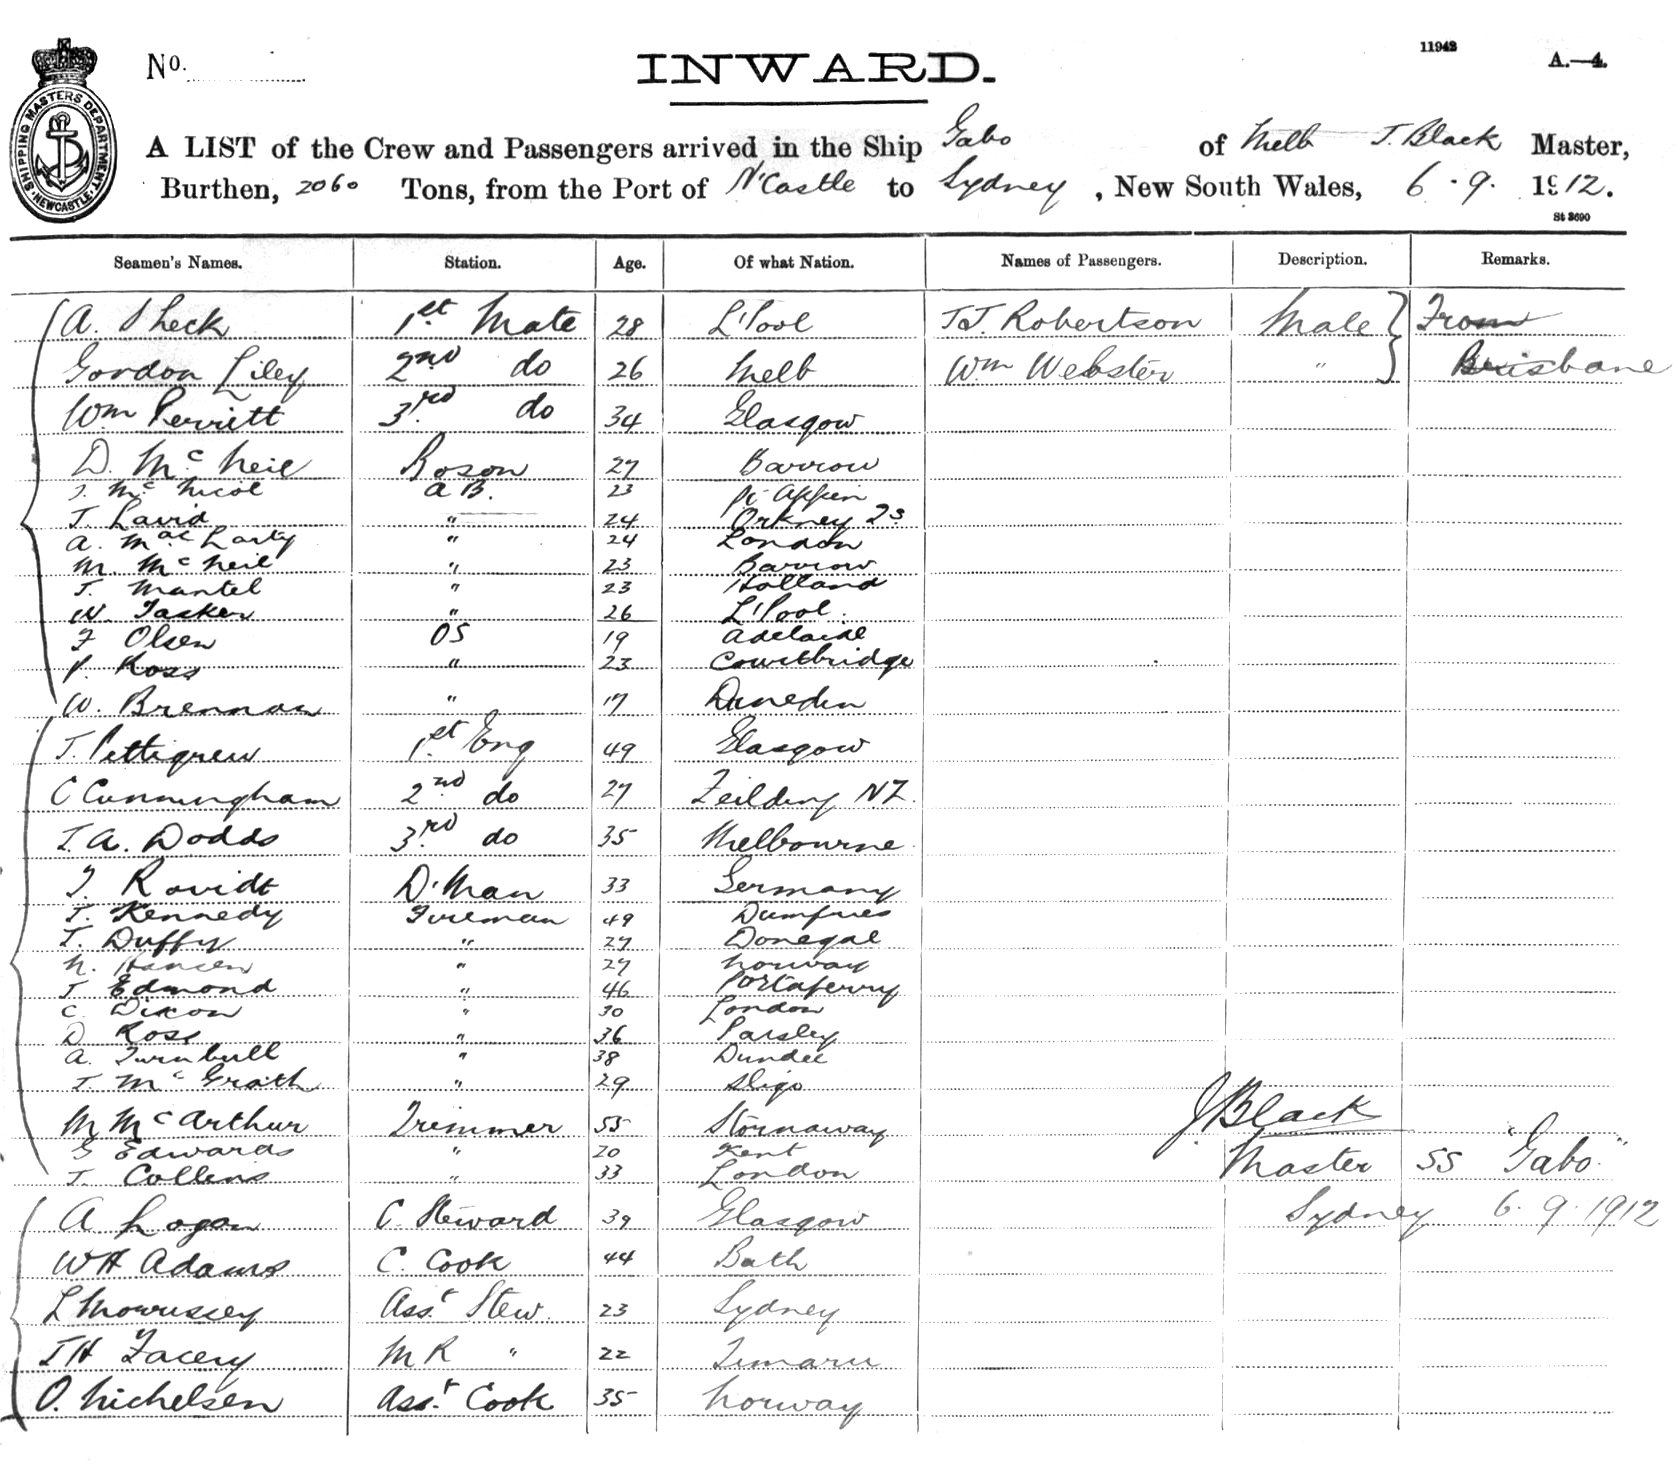 11942
A.—4.
No.
INWARD.
SHIPPING MASTERS DEPARTMENT. NEWCASTLE.
A LIST of the Crew and Passengers arrived in the Ship Gabo of Melb J. Black Master,
Burthen, 2060 Tons, from the Port of N'Castle to Sydney, New South Wales, 6.9.1912.
St 3690
Seamen's Names. Station. Age. Of what Nation. Names of Passengers. Description. Remarks.
A. Sheck 1st Mate 28 L'Pool J.J. Robertson Male From
Gordon Liley 2nd do 26 Melb Wm Webster " Brisbane
Wm Perriett 3rd do 34 Glasgow
D. McNeil Boson 27 Barrow
McNicol A B. 23 Pt Appin
J. David " 24 Orkney Is
A. Mac Larty " 24 London
M. McNeil " 23 Barrow
J. Mantel " 23 Holland
W. Tasker " 26 L'Pool.
F Olsen OS 19 Adelaide
P. Ross " 23 Cowbridge
W. Brennan " 17 Dunedin
J. Pettigrew 1st Eng 49 Glasgow
C Cunningham 2nd do 27 Feilding NZ.
J. A. Dodds 3rd do 35 Melbourne
J. D'Man 33 Germany
J. Kennedy Fireman 49 Dumfries
J. Duffy " 27 Donegal
N. Hansen " 27 Norway
J Edmond " 46 Portaferry
C. Dixon " 30 London
D Ross " 36 Paisley
A. Turnbull " 38 Dundee
J McGrath " 29 Sligo
M McArthur Trimmer 55 Stornaway J Black
E Edwards " 20 Kent Master SS "Gabo."
J. Collins " 33 London
A Logan C. Steward 39 Glasgow Sydney 6.9.1912
W H Adams C. Cook 44 Bath
L Morrissey Asst Stew. 23 Sydney
J H Facey M R " 22 Timaru
O. Nichelsen Asst Cook 35 Norway